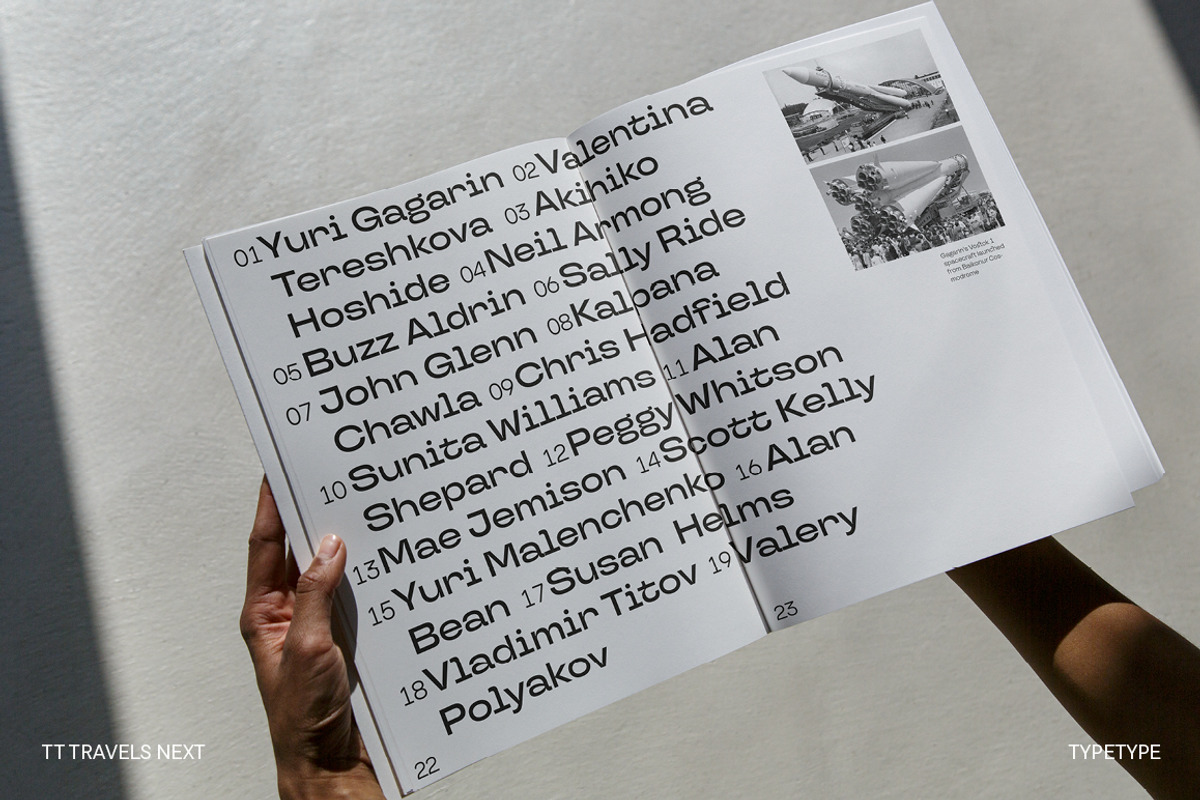 01Yuri Gagarin 02Valentina
Tereshkova 03Akihiko
Hoshide 04Neil Armong
05Buzz Aldrin 06Sally Ride
07 John Glenn 08Kalpana
Chawla 09Chris Hadfield
10Sunita Williams 11Alan
Shepard 12Peggy Whitson
13Mae Jemison 14Scott Kelly
15Yuri Malenchenko 16Alan
Bean 17Susan Helms
18Vladimir Titov 19Valery
Polyakov
Gagarin's Vostok 1
spacecraft launched
from Baikonur Cos-
modrome
22
23
TT TRAVELS NEXT
TYPETYPE